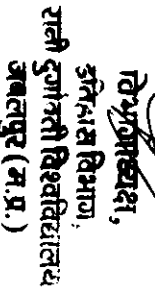 विभागाध्यक्ष,
इतिहास विभाग:
रानी दुर्गावती विश्वविद्यालय
जबलपुर (म.प्र.)